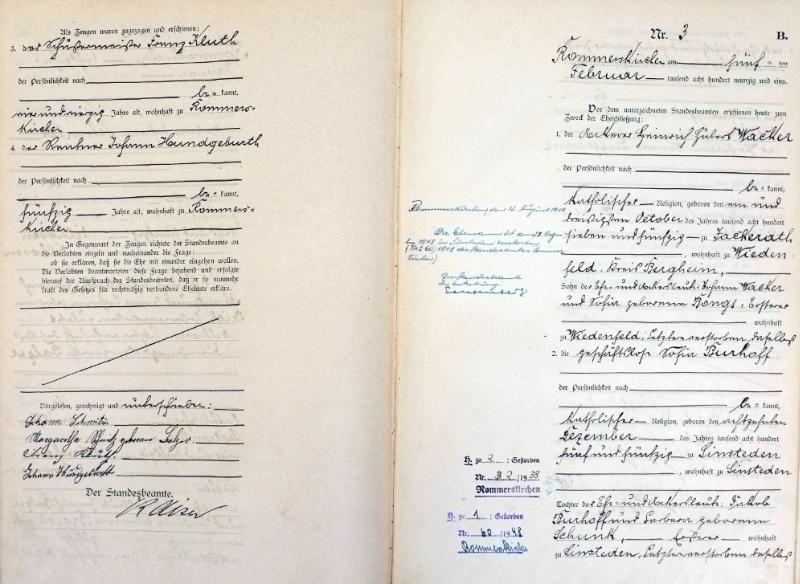 Als Zeugen waren zugezogen und erschienen:
3. der Schustermeister Franz Kluth
der Persönlichkeit nach
be = kannt,
vier und vierzig Jahre alt, wohnhaft zu Rommers-
kirchen
4. der Rentner Johann Hundgeburth
der Persönlichkeit nach
be = kannt,
fünfzig Jahre alt, wohnhaft zu Rommers-
kirchen
In Gegenwart der Zeugen richtete der Standesbeamte
an die Verlobten einzeln und nacheinander die Frage:
ob sie erklären, daß sie die Ehe mit einander eingehen wollen.
Die Verlobten beantworteten diese Frage bejahend und erfolgte
hierauf der Ausspruch des Standesbeamten, daß er sie nunmehr
kraft des Gesetzes für rechtmäßig verbundene Eheleute erkläre.
Vorgelesen, genehmigt und unterschrieben:
Johann
Margaretha geborene
Franz Kluth
Johann Hundgeburth
Der Standesbeamte.
Nr. 3 B.
Rommerskirchen am fünf = ten
Februar tausend acht hundert neunzig und eins.
Vor dem unterzeichneten Standesbeamten erschienen heute zum
Zweck der Eheschließung:
1. der Ackerer Heinrich Hubert Wacker
der Persönlichkeit nach
be = kannt,
katholischer Religion, geboren den ein und
dreißigsten October des Jahres tausend acht hundert
sieben und fünfzig zu Jackerath
, wohnhaft zu Wieden
feld, Kreis Bergheim,
Sohn der Ehe- und Ackersleute: Johann Wacker
und Sofia geborenen Bongs, Ersterer
wohnhaft
zu Wiedenfeld, Letztere verstorben daselbst
2. die geschäftlose Sofia Burhoff
der Persönlichkeit nach
be = kannt,
katholischer Religion, geboren den achtzehnten
Dezember des Jahres tausend acht hundert
fünf und fünfzig zu Sinsteden
, wohnhaft zu Sinsteden
Tochter der Ehe- und Ackersleute: Jakob
Burhoff und Barbara geborenen
Schunk, Ersterer wohnhaft
zu Sinsteden, Letztere verstorben daselbst
Rommerskirchen, den
Der Ehemann ist am
1948 in Sinsteden verstorben
Der Standesbeamte
H. zu 2 : Gestorben
Nr. 32 /1938
Rommerskirchen
H. zu 1 : Gestorben
Nr. 60 /1948
Rommerskirchen